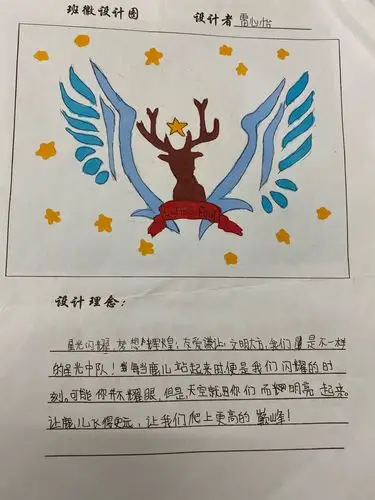 班徽设计图 设计者 雷心怡
设计理念：
星光闪耀，梦想辉煌，友爱谦让，文明大方，我们是不一样
的星光中队！每当鹿儿站起来时便是我们闪耀的时
刻。可能你并不耀眼，但是天空就因你们而耀明亮起来。
让鹿儿飞得更远，让我们爬上更高的巅峰！